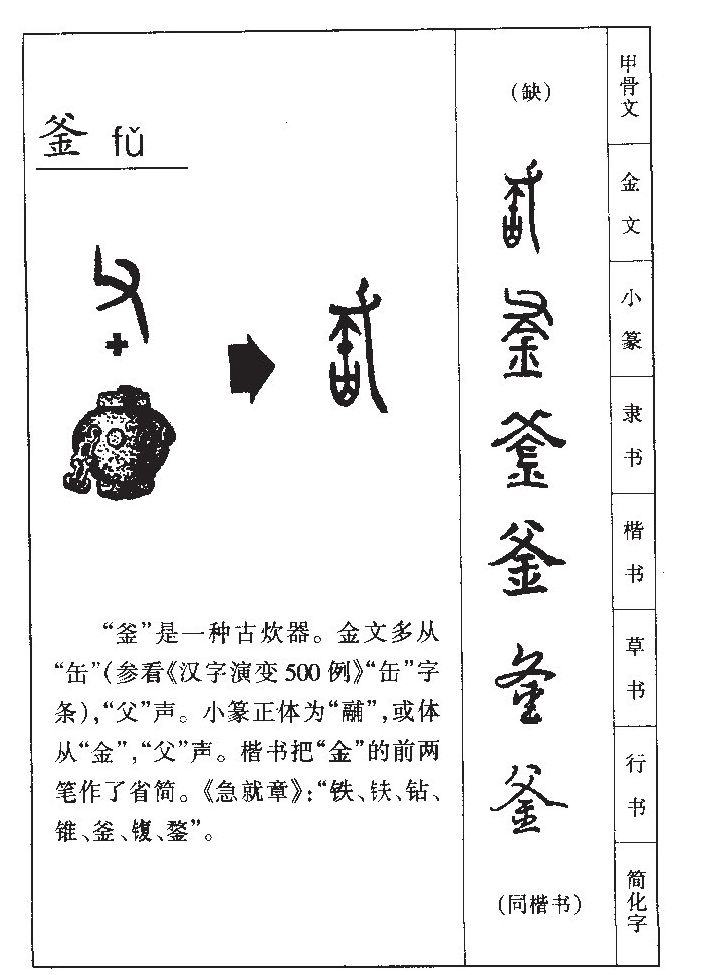 釜 fǔ
+
“釜”是一种古炊器。金文多从
“缶”(参看《汉字演变500例》“缶”字
条),“父”声。小篆正体为“鬴”,或体
从“金”,“父”声。楷书把“金”的前两
笔作了省简。《急就章》:“铁、𫓧、钻、
锥、釜、鍑、鍪”。
(缺)
甲骨文
金文
小篆
釜
隶书
釜
楷书
釜
草书
釜
行书
(同楷书)
简化字